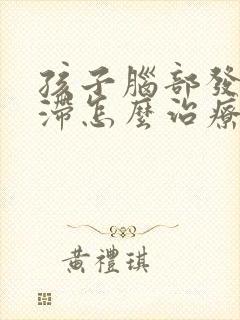 孩子腦部發
滯怎麼治療
黃禮琪